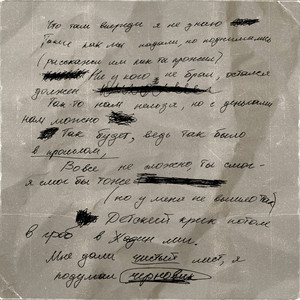 Что там впереди я не знаю
Такие как мы падали, но поднимались
(расскажем им как ты прожил)
Ни у кого не брал, остался
должен
Там-то нам нельзя, но с деньгами
нам можно
Так будет, ведь так было
в прошлом,
Вовсе не можно, ты смог-
я смог бы тоже
(но у меня не вышло)
Детский крик потом
в гроб в
Мне дали чистый лист, я
подумал черновик